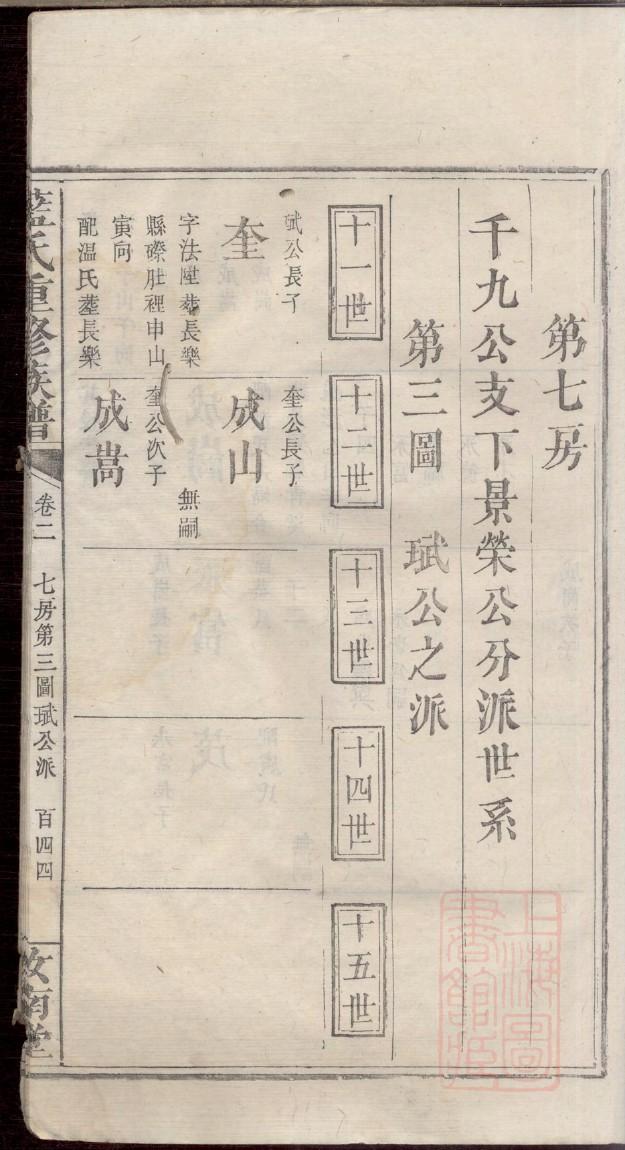 第七房
千九公支下景榮公分派世系
第三圖 珷公之派
十一世
十二世
十三世
十四世
十五世
珷公長子
奎
字法陞葬長樂
縣礤肚裡申山
寅向
配温氏葬長樂
奎公長子
成山
無嗣
奎公次子
成嵩
藍氏重修族譜
卷二
七房第三圖珷公派
百四四
汝南堂
上海圖書館藏